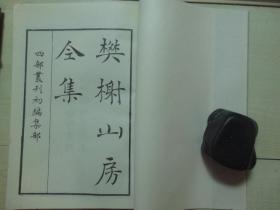 樊榭山房
全集
四部叢刊初編集部